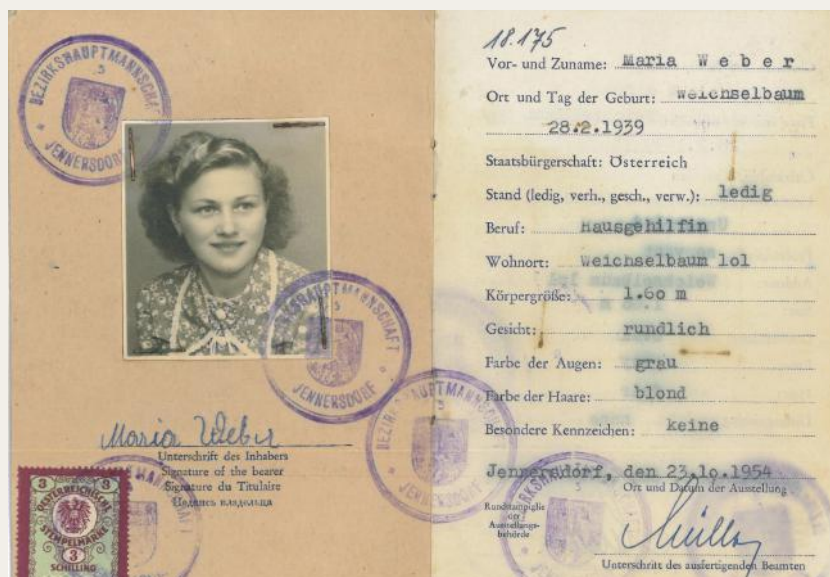 BEZIRKSHAUPTMANNSCHAFT
3
JENNERSDORF
BEZIRKSHAUPTMANNSCHAFT
3
JENNERSDORF
Maria Weber
Unterschrift des Inhabers
Signature of the bearer
Signature du Titulaire
Надпись владельца
3 3
OESTERREICHISCHE
STEMPELMARKE
3
SCHILLING
18.175
Vor- und Zuname: Maria Weber
Ort und Tag der Geburt: Weichselbaum
28.2.1939
Staatsbürgerschaft: Österreich
Stand (ledig, verh., gesch., verw.): ledig
Beruf: Hausgehilfin
Wohnort: Weichselbaum lol
Körpergröße: 1.60 m
Gesicht: rundlich
Farbe der Augen: grau
Farbe der Haare: blond
Besondere Kennzeichen: keine
Jennersdorf, den 23.10.1954
Ort und Datum der Ausstellung
BEZIRKSHAUPTMANNSCHAFT
3
JENNERSDORF
Rundstampiglie
der
Ausstellungs-
behörde
Unterschrift des ausfertigenden Beamten